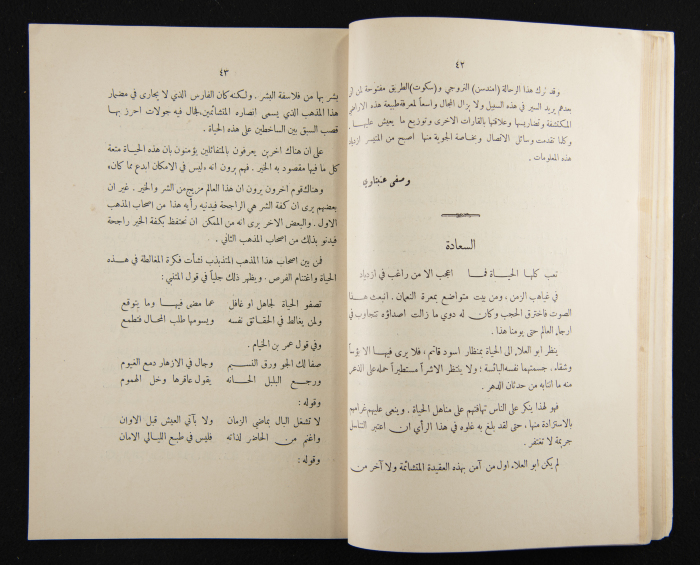 ٤٢
وقد ترك هذا الرحالة (امندسن) النروجي و(سكوت) الطريق مفتوحة لمن أتى
بعدهم يريد السير في هذه السبيل ولا يزال المجال واسعاً لمعرفة طبيعة هذه الاراضي
المكتشفة وتضاريسها وعلاقتها بالقارات الاخرى وتوزيع ما يعيش عليها .
وكلما تقدمت وسائل الاتصال وبخاصة الجوية منها اصبح من المتيسر ازدياد
هذه المعلومات .
وصفي عنبتاوي
السعادة
تعب كلها الحياة فما اعجب الا من راغب في ازدياد
في غياهب الزمن ، ومن بيت متواضع بمعرة النعمان . انبعث هذا
الصوت فاخترق الحجب وكان له دوي ما زالت اصداؤه تتجاوب في
ارجاء العالم حتى يومنا هذا .
ينظر ابو العلاء الى الحياة بمنظار اسود قاتم ، فلا يرى فيها الا بؤساً
وشقاء . جسمتهما نفسه البائسة ؛ ولا ينتظر الا شراً مستطيراً حمله على الذعر
منه ما انتابه من حدثان الدهر .
فهو لهذا ينكر على الناس تهافتهم على مناهل الحياة . وينعى عليهم غرامهم
بالاستزادة منها ، حتى لقد بلغ به غلوه في هذا الرأي ان اعتبر التناسل
جريمة لا تغتفر .
لم يكن ابو العلاء اول من آمن بهذه العقيدة المتشائمة ولا آخر من
٤٣
بشر بها من فلاسفة البشر . ولكنه كان الفارس الذي لا يجارى في مضمار
هذا المذهب الذي يسمى انصاره المتشائمين فجال فيه جولات احرز بها
قصب السبق بين الساخطين على هذه الحياة .
على ان هناك اخرين يعرفون بالمتفائلين يؤمنون بان هذه الحياة متعة
كل ما فيها مقصود به الخير . فهم يرون انه «ليس في الامكان ابدع مما كان»
وهناك قوم اخرون يرون ان هذا العالم مزيج من الشر والخير . غير ان
بعضهم يرى ان كفة الشر هي الراجحة فيدنيه رأيه هذا من اصحاب المذهب
الاول . والبعض الاخر يرى انه من الممكن ان تحتفظ بكفة الخير راجحة
فيدنو بذلك من اصحاب المذهب الثاني .
فمن بين اصحاب هذا المذهب المتذبذب نشأت فكرة المغالطة في هذه
الحياة واغتنام الفرص . ويظهر ذلك جلياً في قول المتنبي :
تصفو الحياة لجاهل او غافل عما مضى فيها وما يتوقع
ولمن يغالط في الحقائق نفسه ويسومها طلب المحال فتطمع
وفي قول عمر بن الخيام .
صفا لك الجو ورق النسيم وجال في الازهار دمع الغيوم
ورجع البلبل الحانه يقول عاقرها وخل الهموم
وقوله :
لا تشغل البال بماضي الزمان ولا بآتي العيش قبل الاوان
واغنم من الحاضر لذاته فليس في طبع الليالي الامان
وقوله :